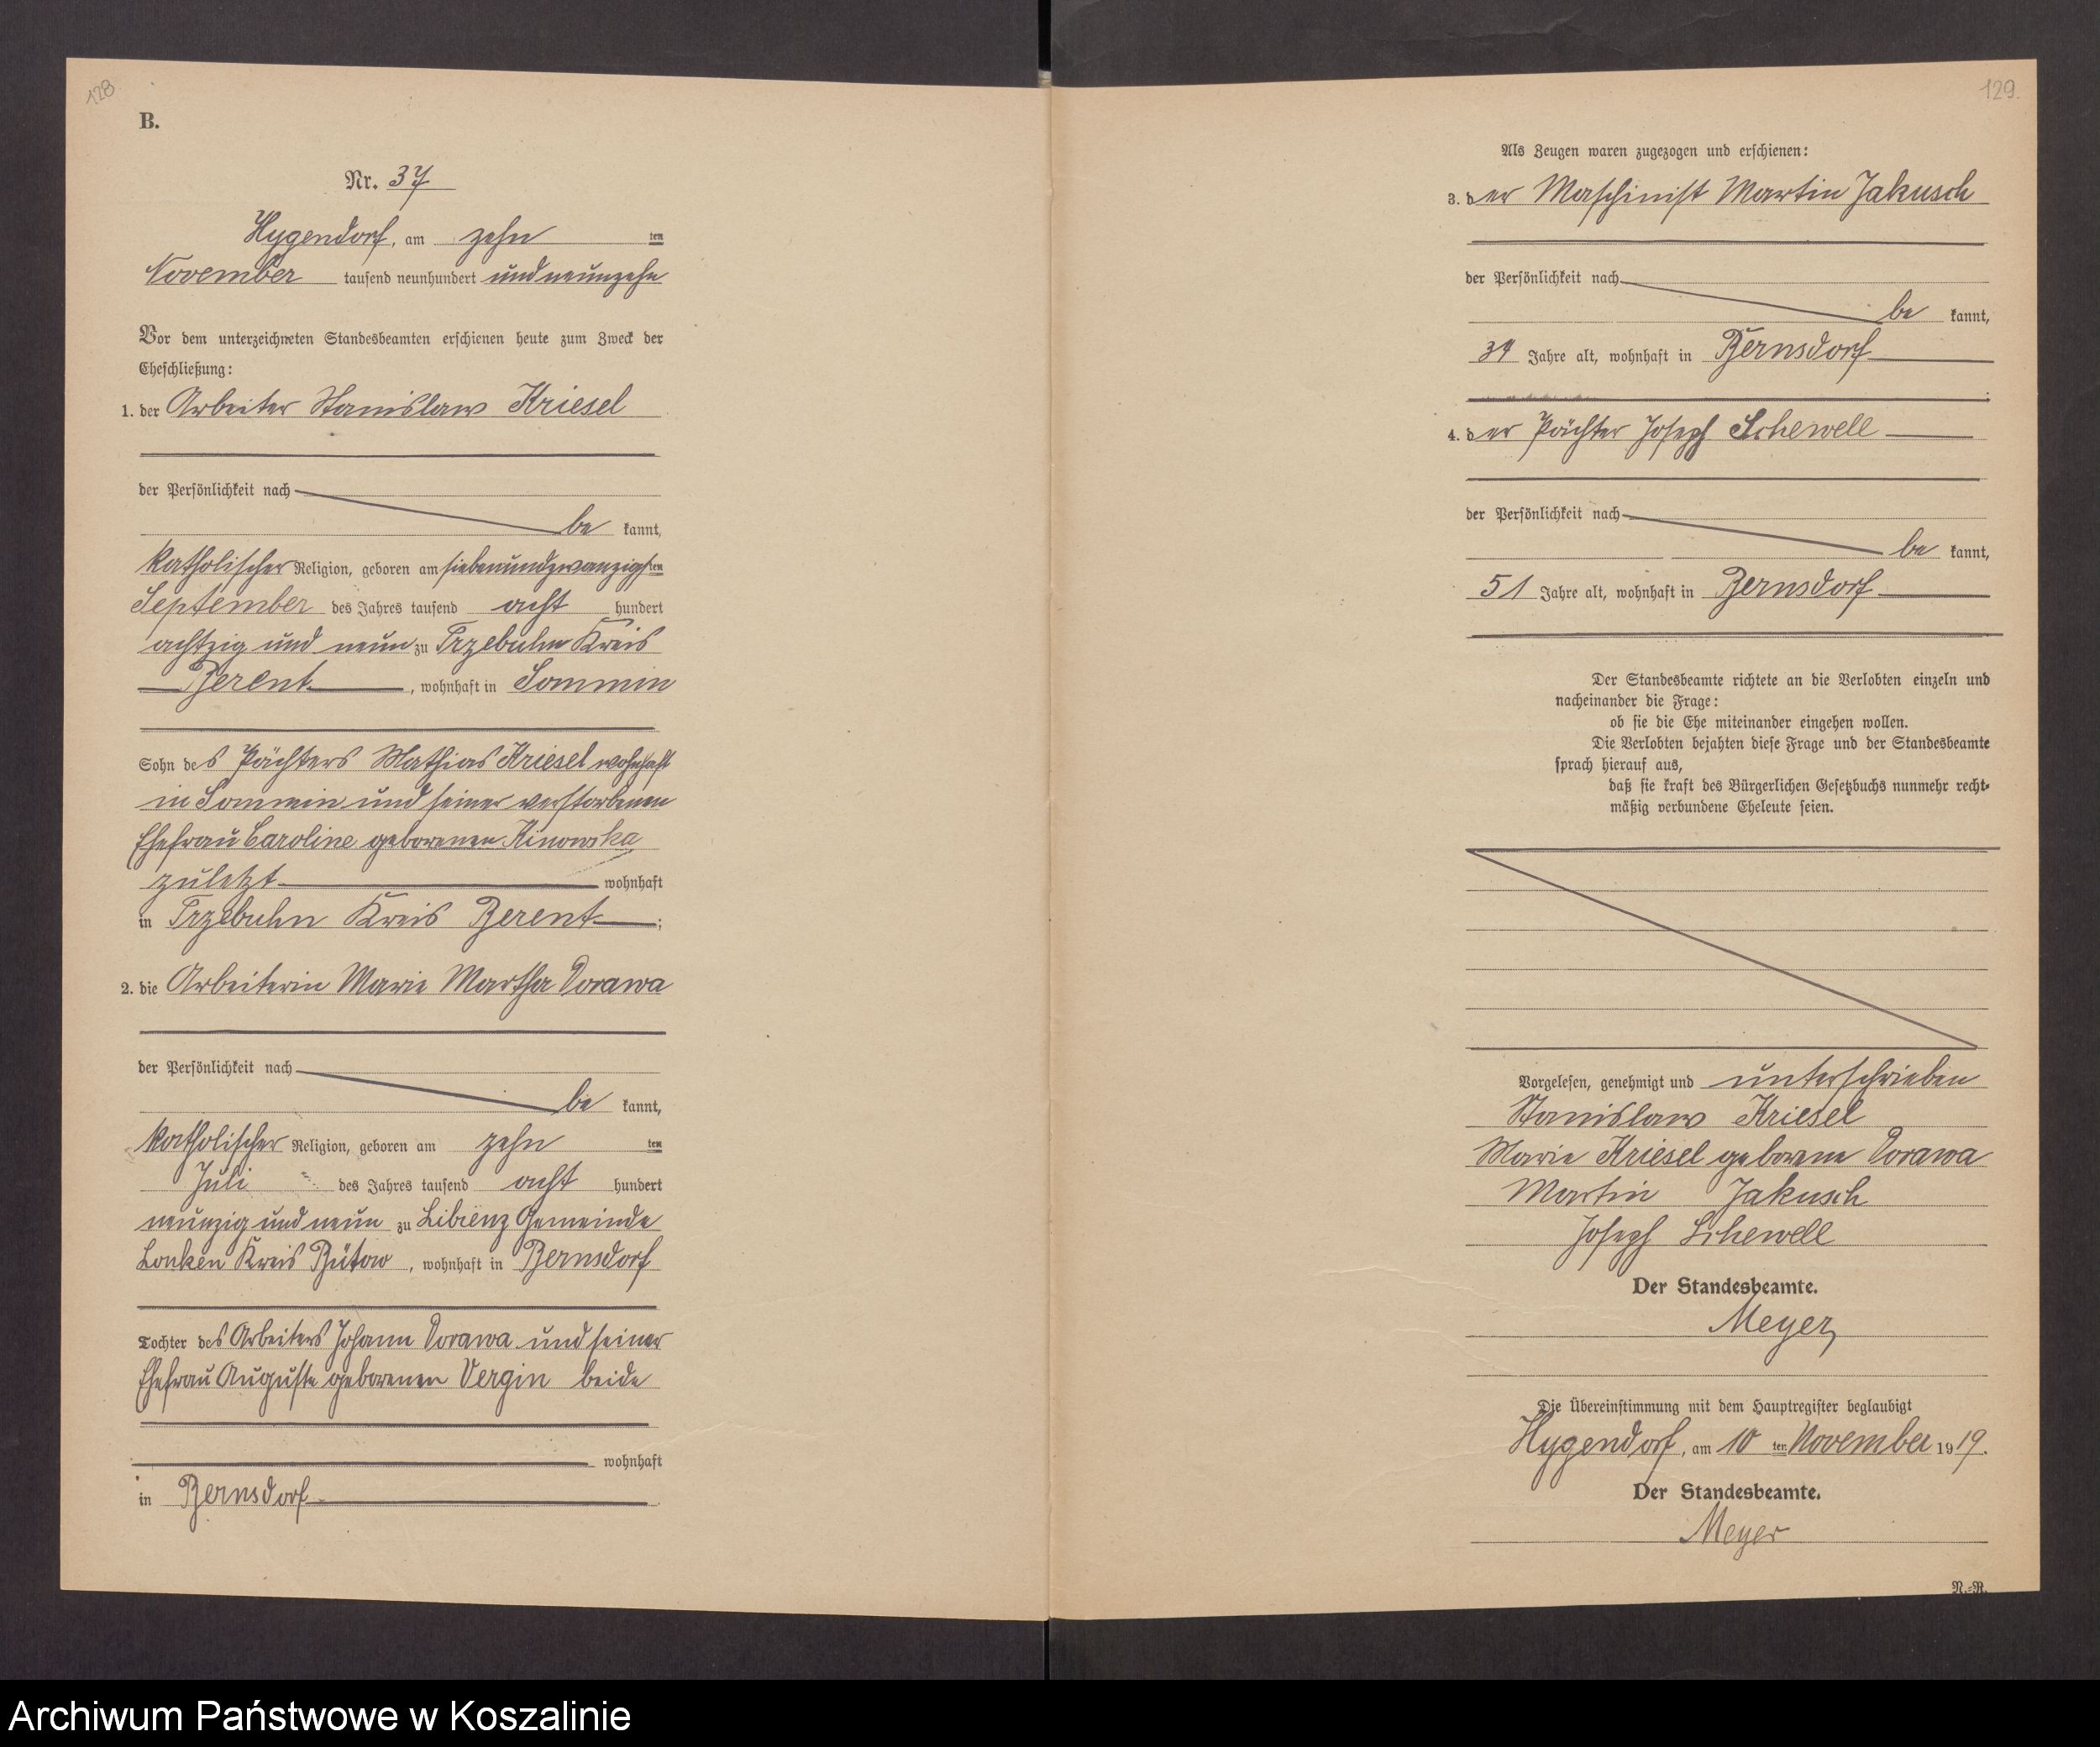 128
B.
Nr. 37
Hygendorf, am zehn ten
November tausend neunhundert und neunzehn
Vor dem unterzeichneten Standesbeamten erschienen heute zum Zweck der
Eheschließung:
1. der Arbeiter Stanislaw Kriesel
der Persönlichkeit nach
be kannt,
katholischer Religion, geboren am siebenundzwanzigsten
September des Jahres tausend acht hundert
achtzig und neun zu Trzebuhn Kreis
Berent, wohnhaft in Sommin
Sohn des Pächters Mathias Kriesel wohnhaft
in Sommin und seiner verstorbenen
Ehefrau Caroline geborenen Kinowska
zuletzt wohnhaft
in Trzebuhn Kreis Berent;
2. die Arbeiterin Marie Martha Dorawa
der Persönlichkeit nach
be kannt,
katholischer Religion, geboren am zehn ten
Juli des Jahres tausend acht hundert
neunzig und neun zu Libienz Gemeinde
Lonken Kreis Bütow, wohnhaft in Bernsdorf
Tochter des Arbeiters Johann Dorawa und seiner
Ehefrau Auguste geborenen Vergin beide
wohnhaft
in Bernsdorf
129.
Als Zeugen waren zugezogen und erschienen:
3. der Maschinist Martin Jakusch
der Persönlichkeit nach
be kannt,
Jahre alt, wohnhaft in Bernsdorf
4. der Pächter Joseph Schewell
der Persönlichkeit nach
be kannt,
51 Jahre alt, wohnhaft in Bernsdorf
Der Standesbeamte richtete an die Verlobten einzeln und
nacheinander die Frage:
ob sie die Ehe miteinander eingehen wollen.
Die Verlobten bejahten diese Frage und der Standesbeamte
sprach hierauf aus,
daß sie kraft des Bürgerlichen Gesetzbuchs nunmehr recht-
mäßig verbundene Eheleute seien.
Vorgelesen, genehmigt und unterschrieben
Stanislaw Kriesel
Marie Kriesel geborene Dorawa
Martin Jakusch
Joseph Schewell
Der Standesbeamte.
Meyer
Die Übereinstimmung mit dem Hauptregister beglaubigt
Hygendorf, am 10 ten November 1919.
Der Standesbeamte.
Meyer
N.-R.
Archiwum Państwowe w Koszalinie